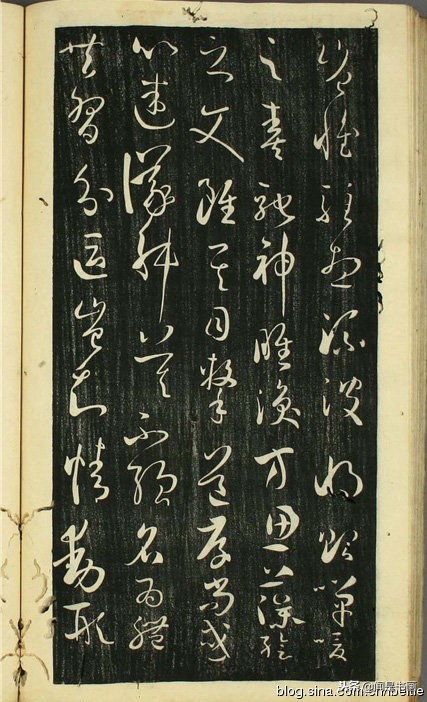 豈惟駐想流波將貽嘽喛
之奏馳神睢渙方思藻繪
之文雖其目擊道存尚或
心迷義舛莫不強名為體
共習分區豈知情動形
头条@闻是书画
blog.sina.com.cn/beitie